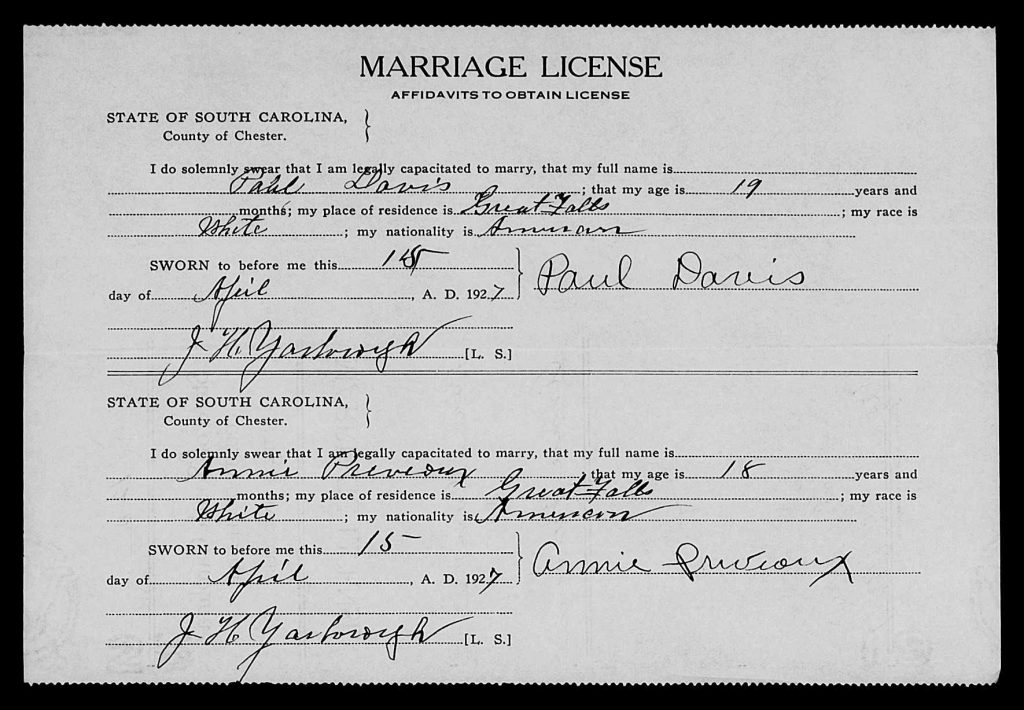 MARRIAGE LICENSE
AFFIDAVITS TO OBTAIN LICENSE
STATE OF SOUTH CAROLINA,
County of Chester.
I do solemnly swear that I am legally capacitated to marry, that my full name is
Paul Davis ; that my age is 19 years and
months; my place of residence is Great Falls ; my race is
White ; my nationality is American
SWORN to before me this 15
day of April , A. D. 1927
Paul Davis
J H Yarborough [L. S.]
STATE OF SOUTH CAROLINA,
County of Chester.
I do solemnly swear that I am legally capacitated to marry, that my full name is
Annie Preveaux ; that my age is 18 years and
months; my place of residence is Great Falls ; my race is
White ; my nationality is American
SWORN to before me this 15
day of April , A. D. 1927
Annie Priveaux
J H Yarborough [L. S.]